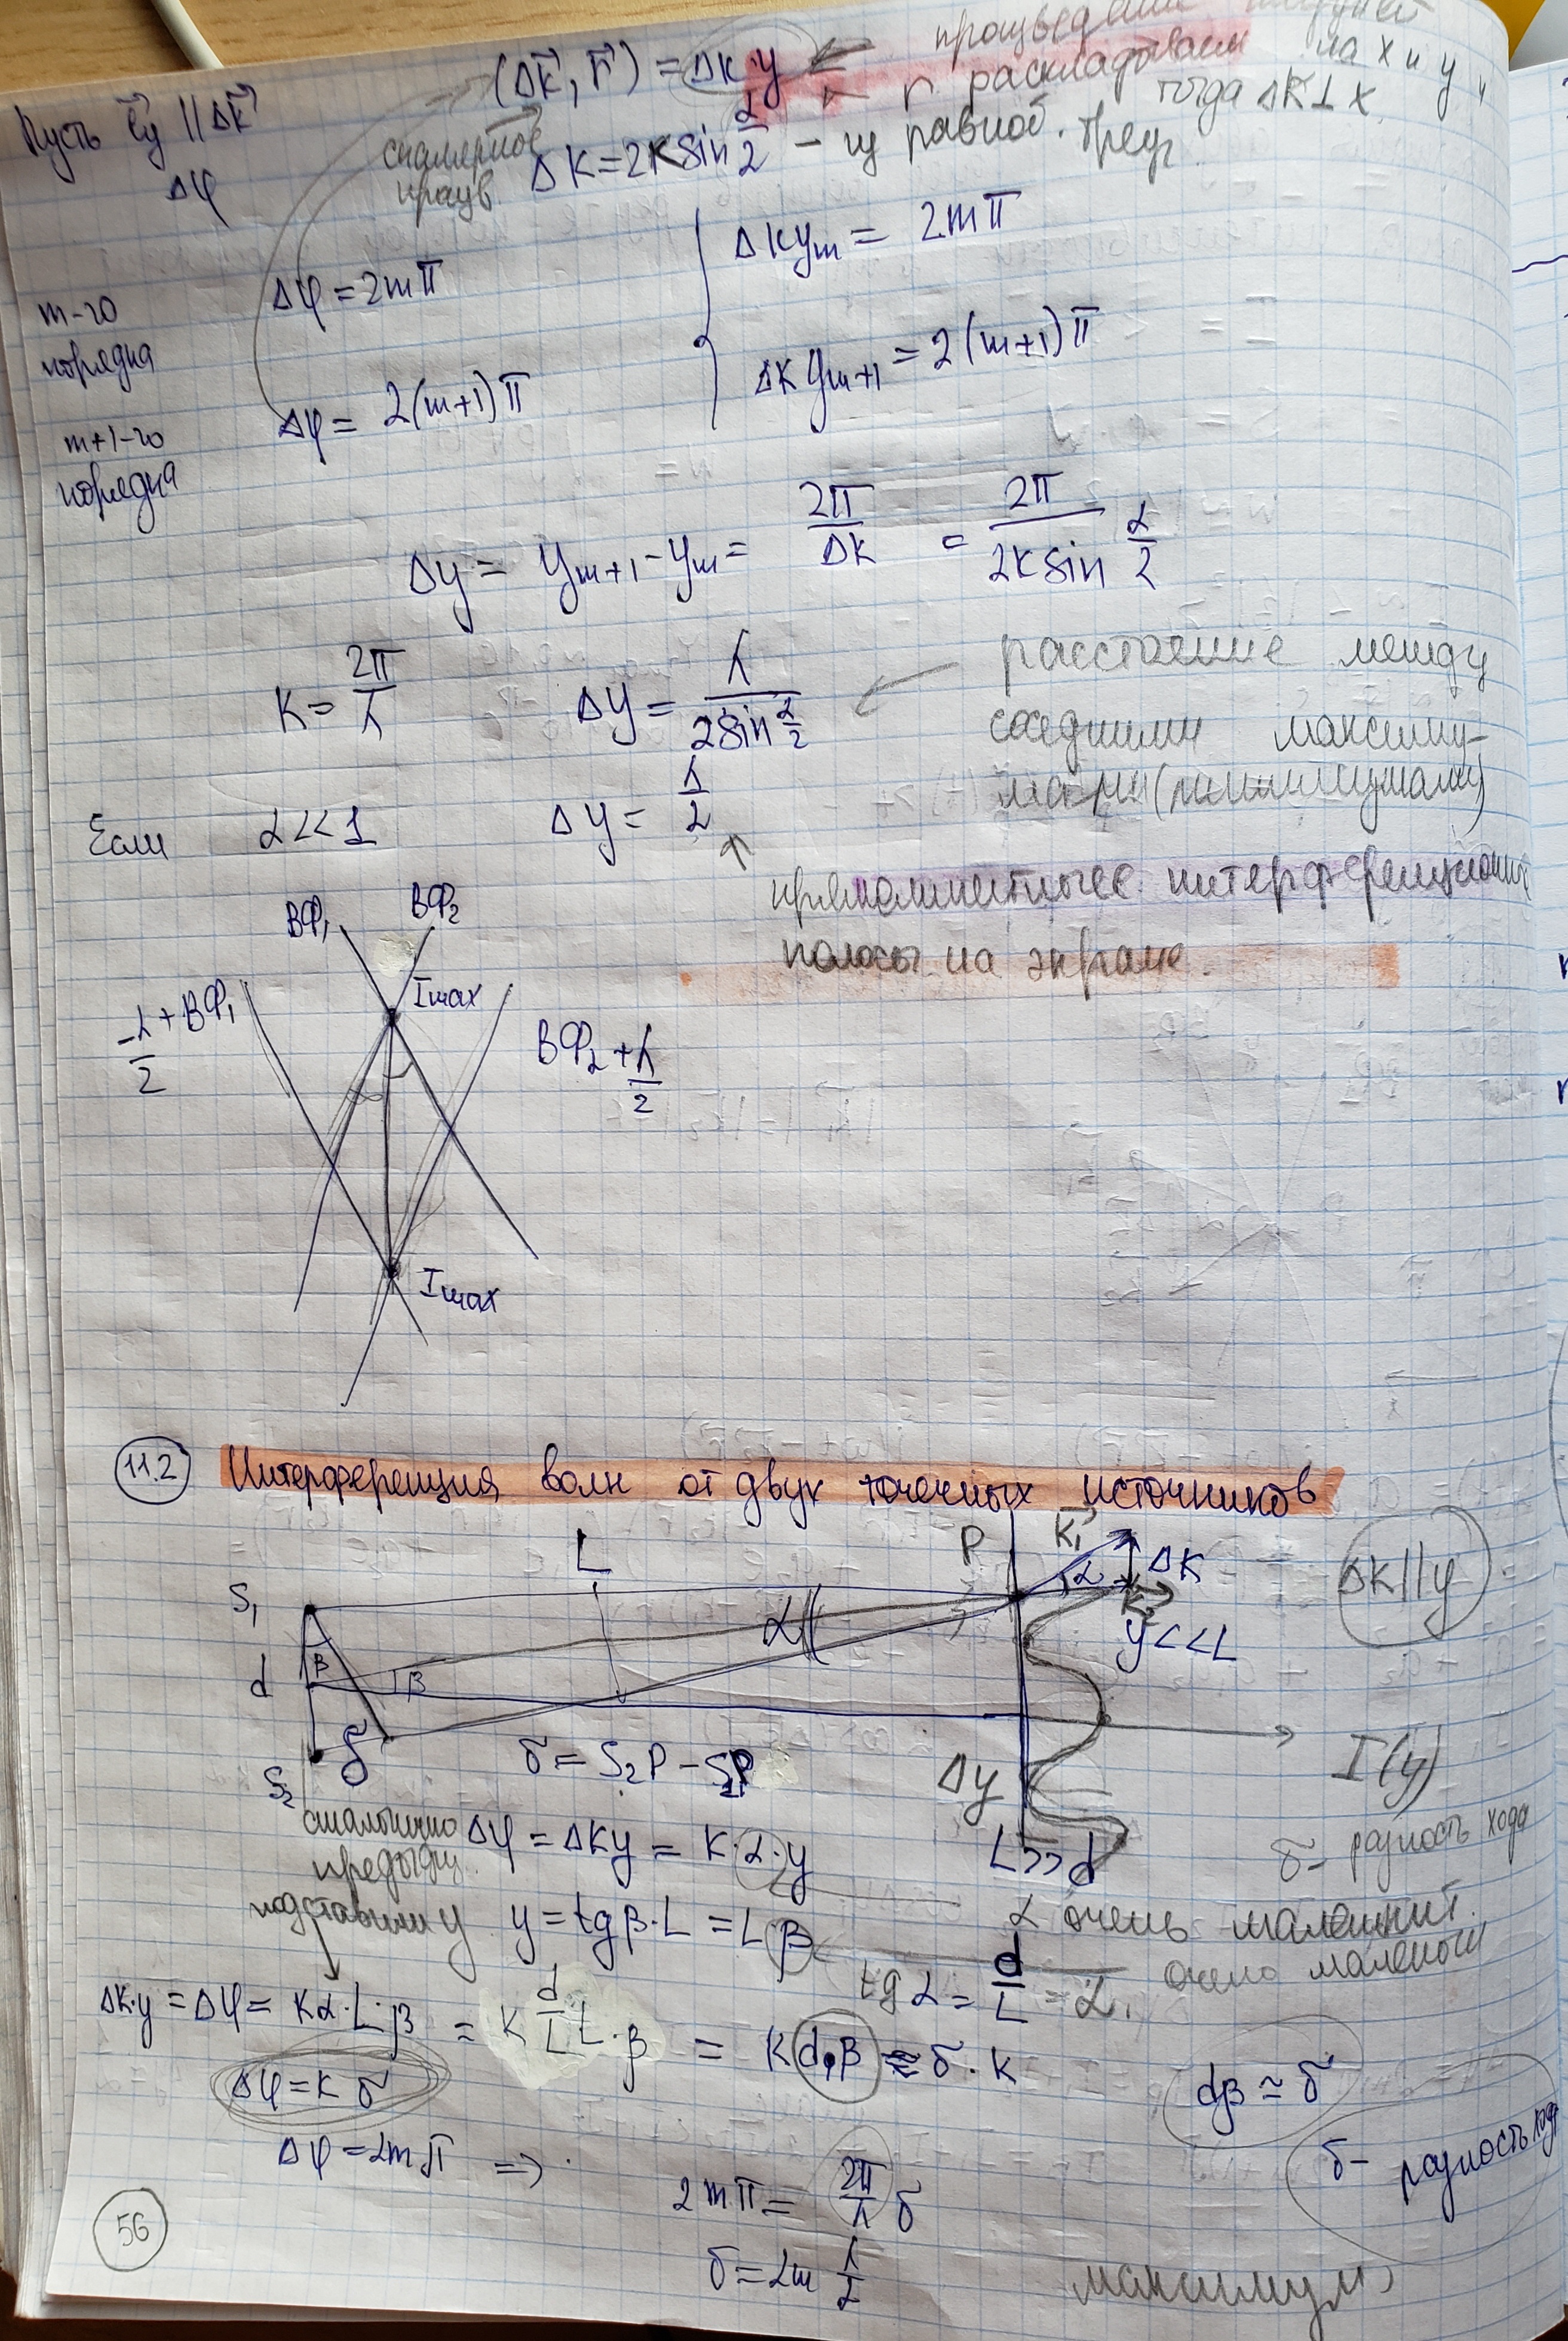 (Δk⃗, r⃗) = Δk·y ← произведение
Пусть e⃗y || Δk⃗
← r⃗ раскладываем на x и y,
тогда Δk⊥x
Δφ
скалярное
Δk=2k sin α/2 – из равноб. треуг.
m-го
порядка
Δφ = 2mπ
Δk yₘ = 2mπ
m+1-го
порядка
Δφ = 2(m+1)π
Δk yₘ₊₁ = 2(m+1)π
Δy = yₘ₊₁ - yₘ = 2π/Δk = 2π/(2k sin α/2)
k = 2π/λ
Δy = λ/(2sin α/2)
← расстояние между
соседними максиму-
мами (минимумами)
Если α<<1
Δy = λ/α
↑
прямолинейные интерференционные
полосы на экране.
ВФ₁ ВФ₂
Imax
-λ/2 + ВФ₁
ВФ₂ + λ/2
Imax
11.2 Интерференция волн от двух точечных источников
L
P k⃗₁ α Δk
k⃗₂
Δk||y
S₁
α
y<<L
d β β
S₂ δ
δ = S₂P - S₁P
Δy
I(y)
L>>d
δ – разность хода
аналогично
предыдущ.
Δφ = Δky = k·α·y
подставим y
y = tgβ·L = Lβ
α очень маленький.
tg α = d/L = α, очень маленький
Δk·y = Δφ = kα·L·β = k d/L L·β = k d·β ≈ δ·k
Δφ = kδ
dβ ≃ δ
Δφ = 2mπ =>
2mπ = 2π/λ δ
δ – разность хода
δ = 2m λ/2
максимум
56